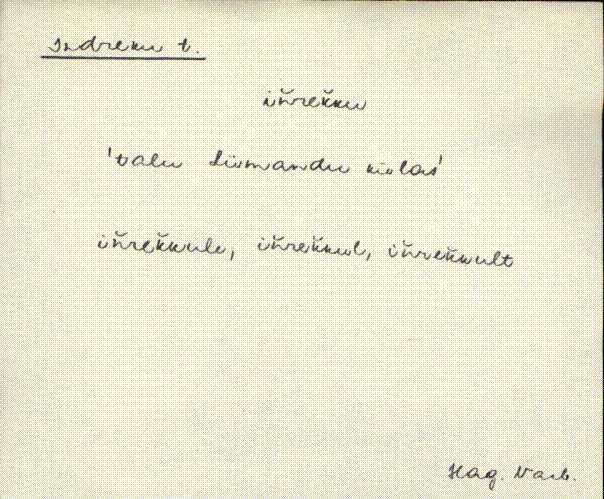 Indreku t.
iňreǩku
'talu Liivmandu külas'
iňreǩkule, iňreǩkul, iňreǩkult
Hag. Varb.